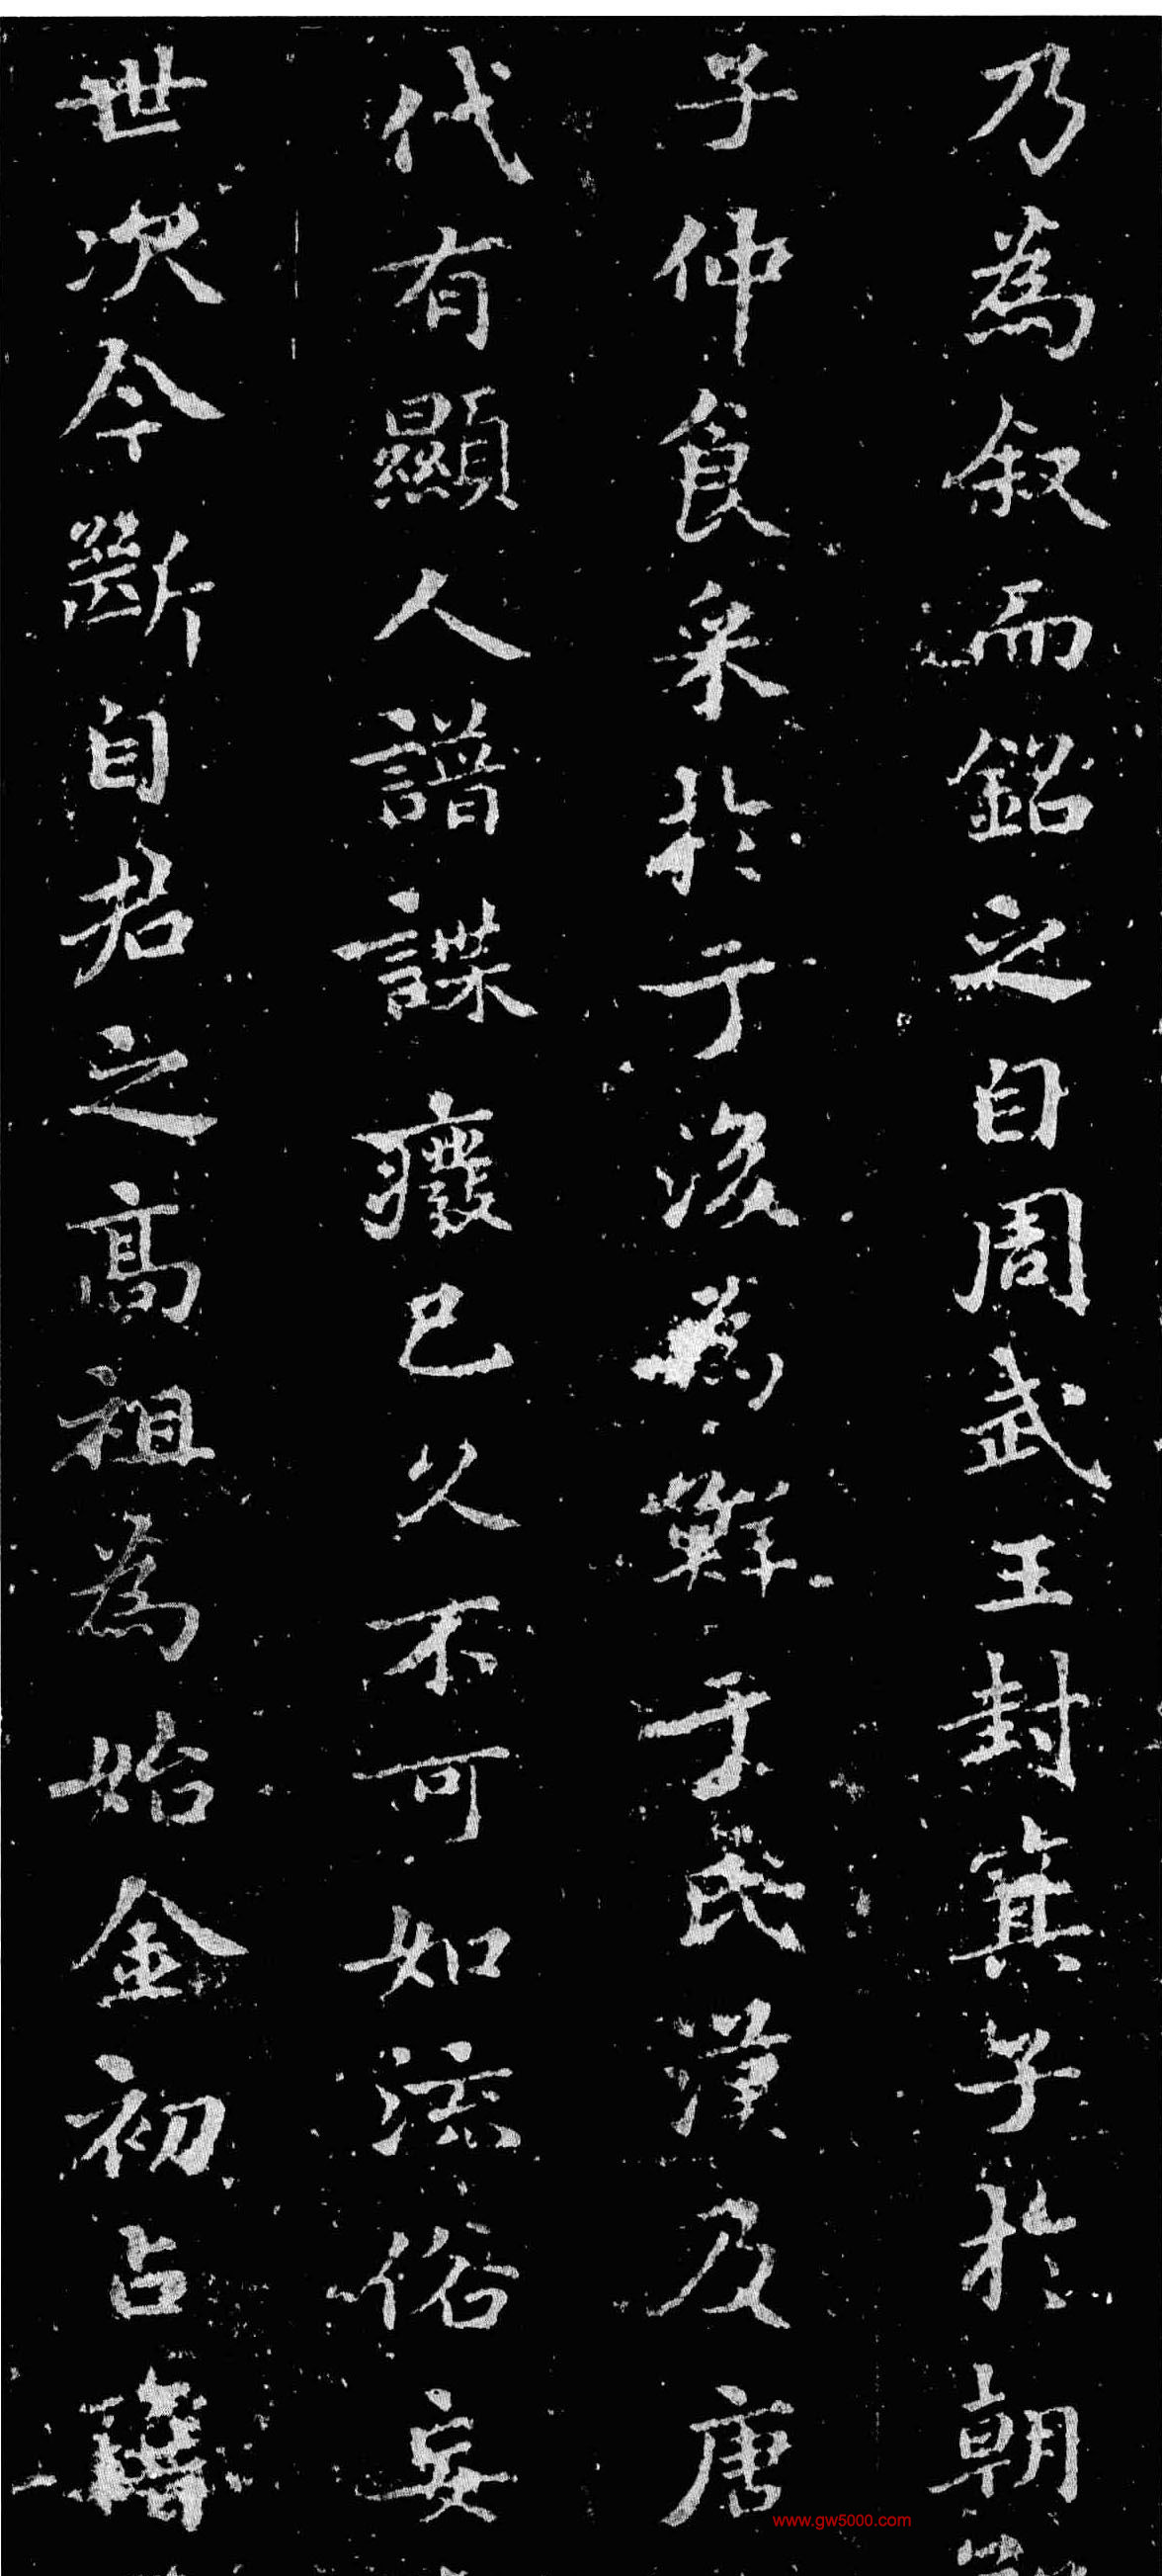 乃為叙而銘之自周武王封箕子於朝
子仲食采於于後為鮮于氏漢及唐
代有顯人譜諜癈已久不可如流俗妄
世次今斷自君之高祖為始金初占籍
www.gw5000.com